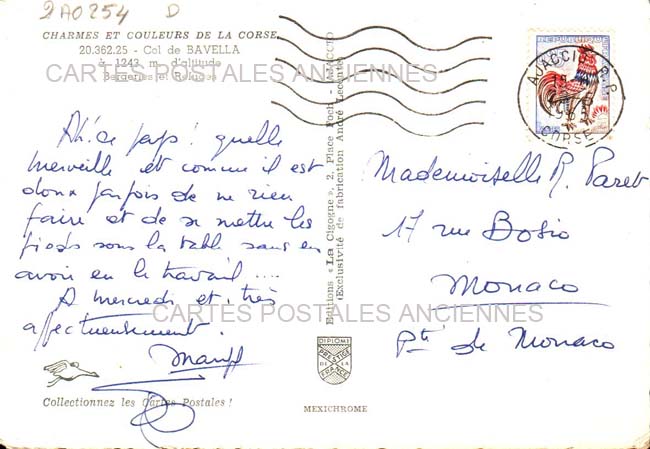 2A0254 D
CHARMES ET COULEURS DE LA CORSE
20.362.25 - Col de BAVELLA
à 1243 m. d'altitude
Bergeries et Refuges
CARTES POSTALES ANCIENNES
Ah! ce pays! quelle
merveille et comme il est
doux parfois de ne rien
faire et de se mettre les
pieds sous la table sans en
avoir eu le travail ....
A mercredi et très
affectueusement.
Collectionnez les Cartes Postales !
Editions « La Cigogne », 2, Place Foch - AJACCIO
(Exclusivité de fabrication André Leconte)
DIPLOME
PRESTIGE
DE LA
FRANCE
MEXICHROME
AJACCIO R.P.
CORSE
Mademoiselle R. Paret
17 rue Bosio
Monaco
CARTES POSTALES ANCIENNES
Pté de Monaco